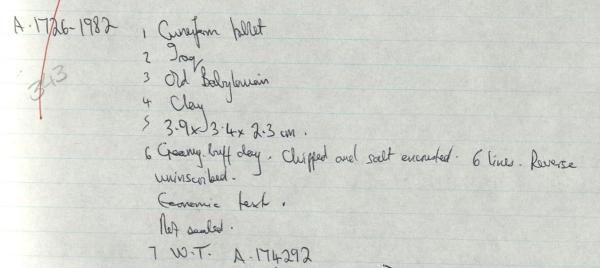 A.1726-1982 1 Cuneiform tablet
343
2 Iraq
3 Old Babylonian
4 Clay
5 3.9 x 3.4 x 2.3 cm.
6 Creamy-buff clay. Chipped and salt encrusted. 6 lines. Reverse
uninscribed.
Economic text.
Not sealed.
7 W.T. A.174292